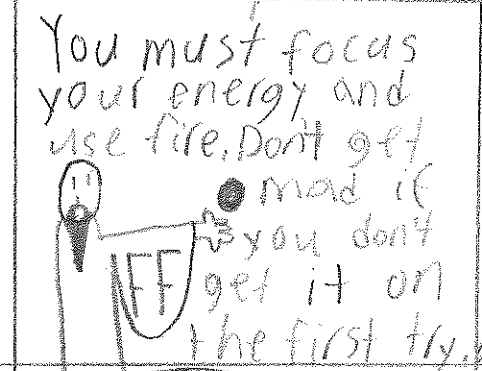 You must focus
your energy and
use fire. Don't get
mad if
you don't
FF get it on
the first try.